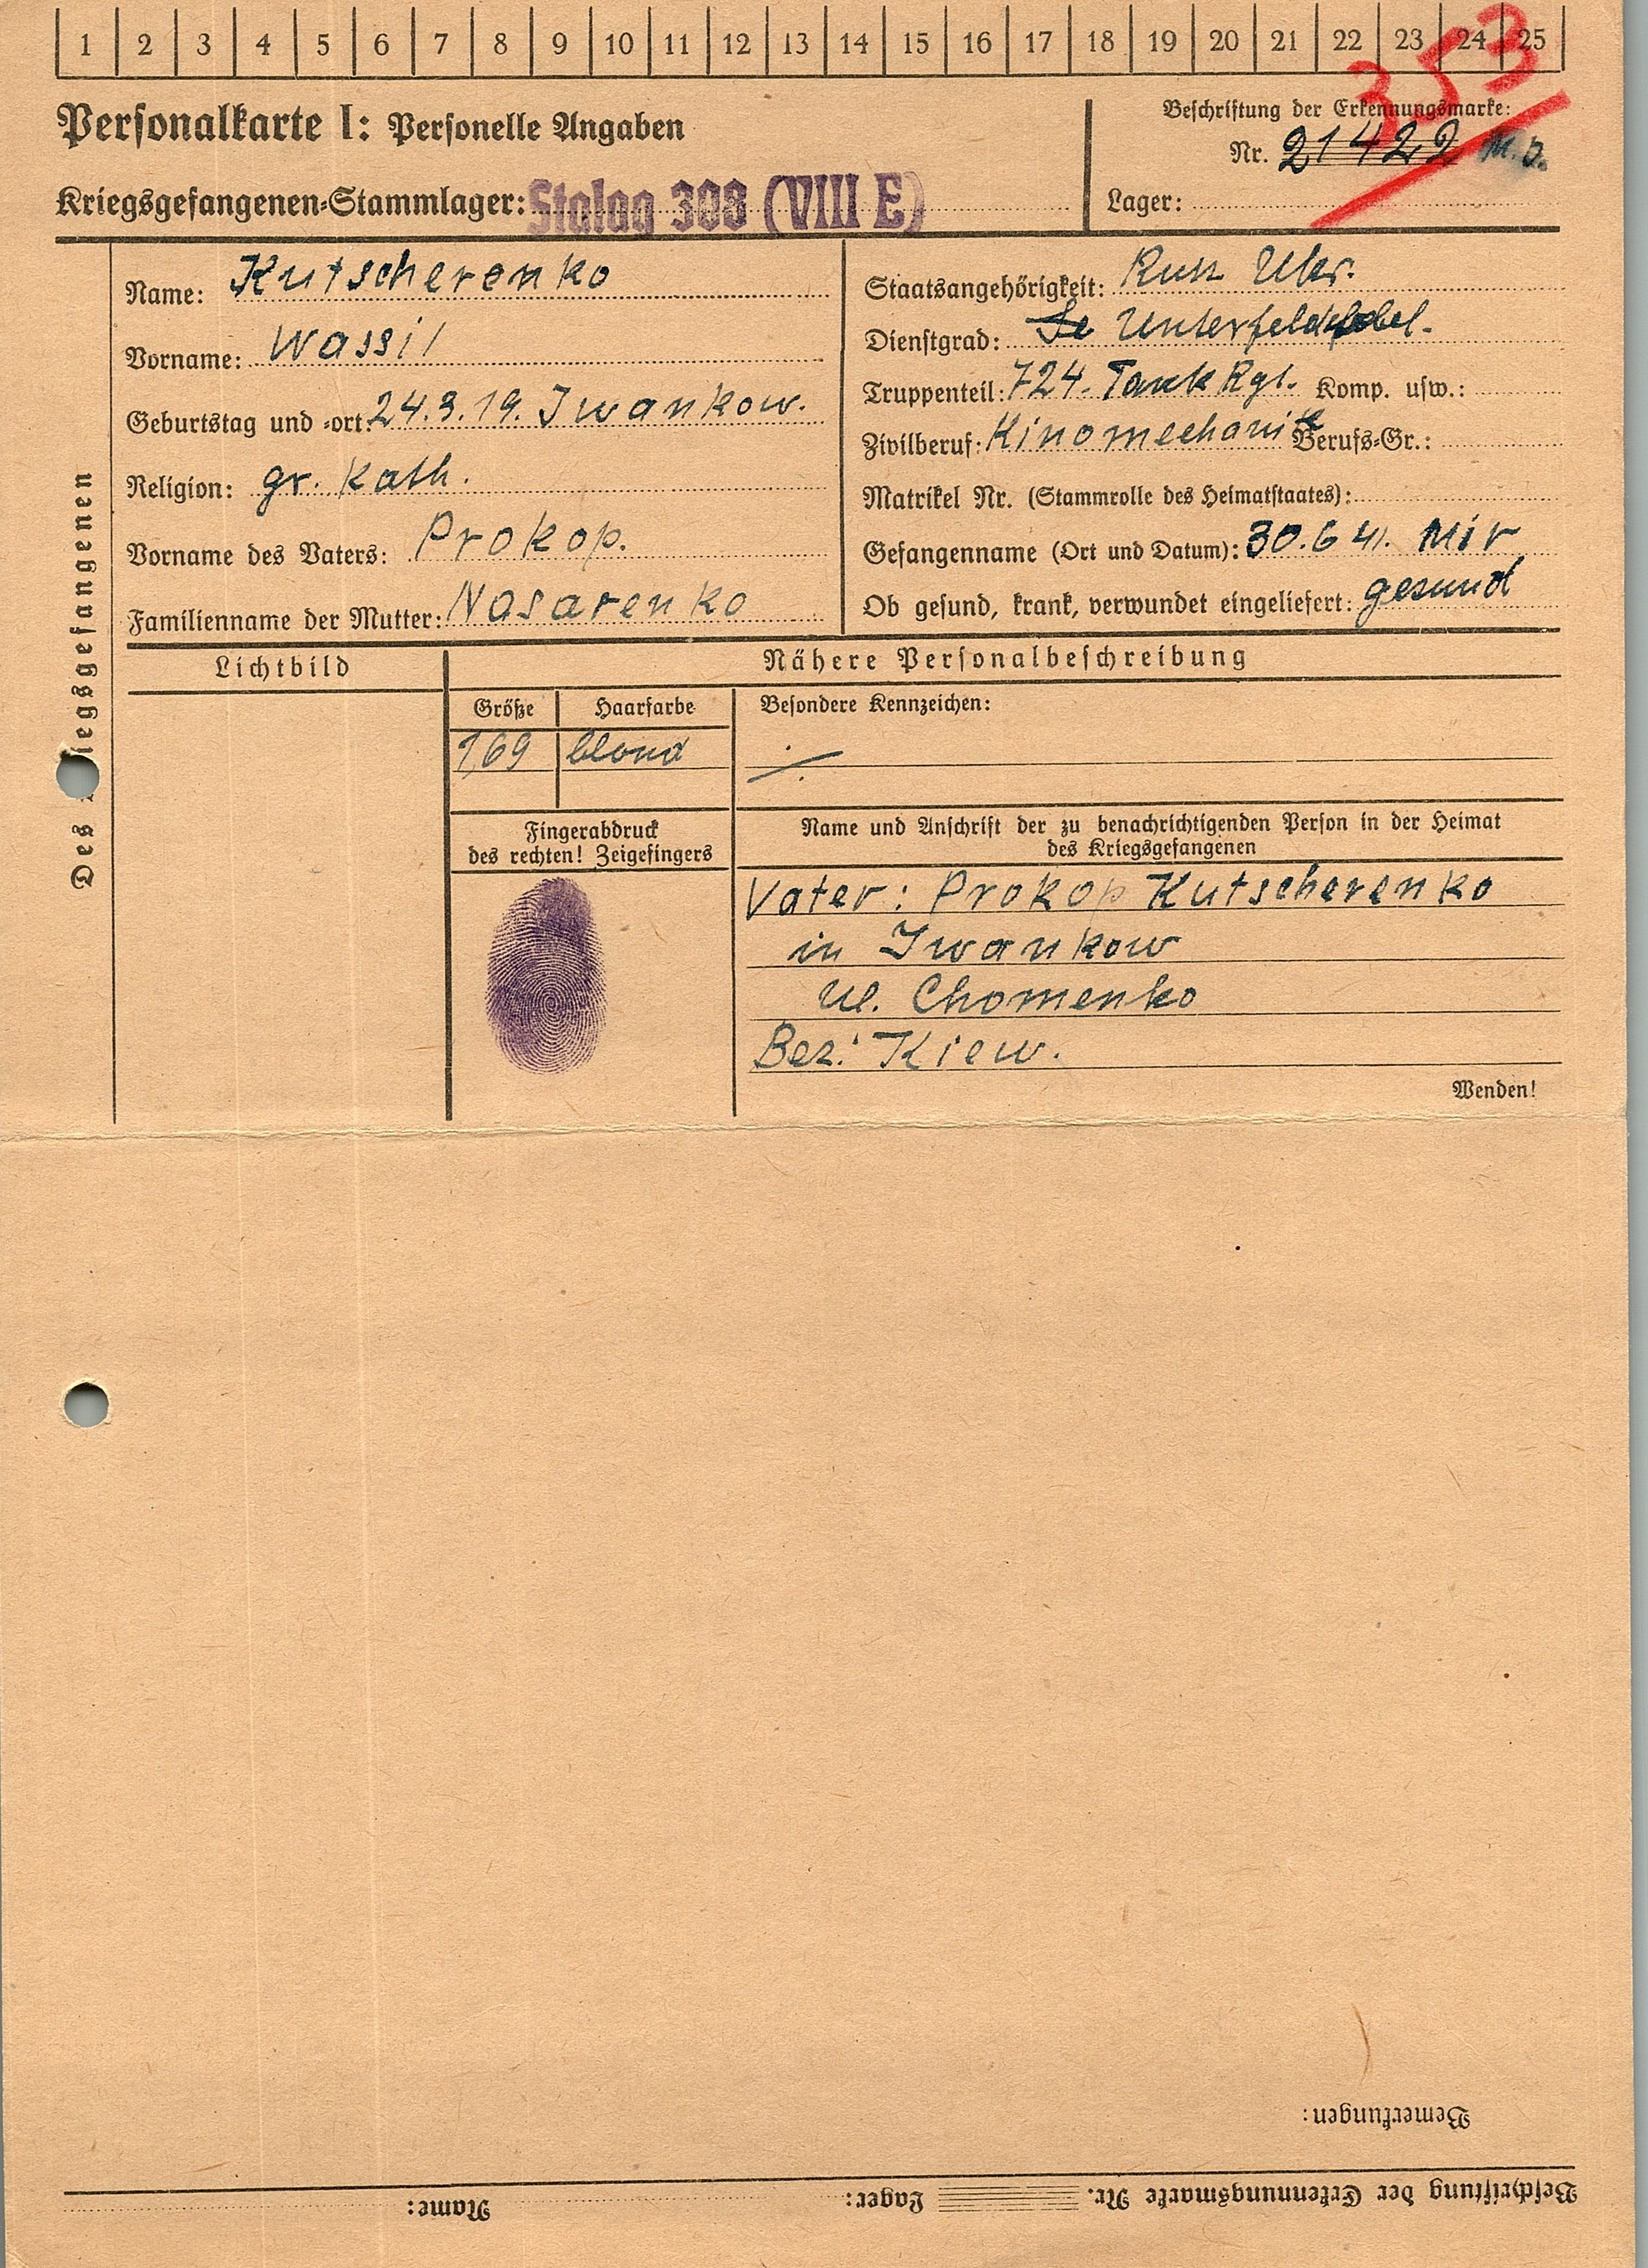 1 2 3 4 5 6 7 8 9 10 11 12 13 14 15 16 17 18 19 20 21 22 23 24 25
353
Personalkarte I: Personelle Angaben
Beschriftung der Erkennungsmarke:
Nr. 21422
Kriegsgefangenen-Stammlager: Stalag 308 (VIII E)
Lager:
Des Kriegsgefangenen
Name: Kutscherenko
Vorname: Wassil
Geburtstag und -ort: 24.3.19. Iwankow.
Religion: gr. kath.
Vorname des Vaters: Prokop.
Familienname der Mutter: Nasarenko
Staatsangehörigkeit: Russ Ukr.
Dienstgrad: Unterfeldwebel.
Truppenteil: 724. Tank Rgt. Komp. usw.:
Zivilberuf: Kinomechanik Berufs-Gr.:
Matrikel Nr. (Stammrolle des Heimatstaates):
Gefangenname (Ort und Datum): 30.6 41. Mir
Ob gesund, krank, verwundet eingeliefert: gesund
Lichtbild
Nähere Personalbeschreibung
Größe Haarfarbe
1,69 blond
Besondere Kennzeichen:
./.
Fingerabdruck
des rechten! Zeigefingers
Name und Anschrift der zu benachrichtigenden Person in der Heimat
des Kriegsgefangenen
Vater: Prokop Kutscherenko
in Iwankow
Ul. Chomenko
Bez: Kiew.
Wenden!
Bemerkungen:
Beschriftung der Erkennungsmarke Nr. Lager: Name: